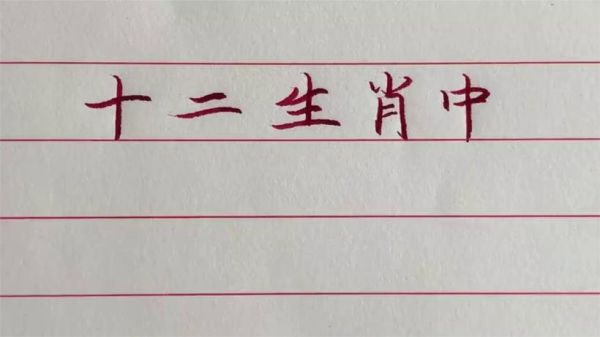 十二生肖中